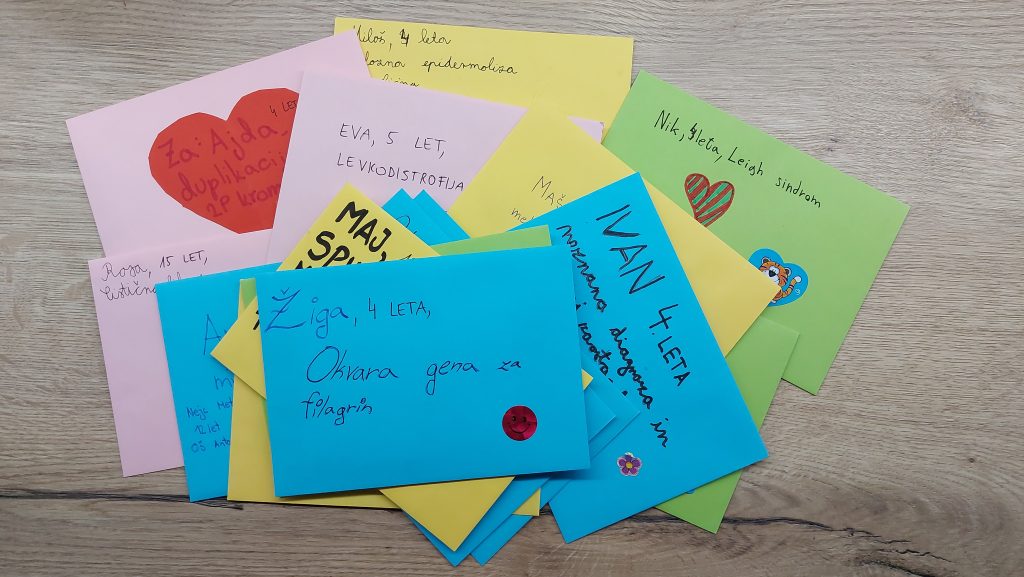 Miloš, 4 leta
epidermoliza
4 LET
Za: Ajda
duplikacij
2P krom
EVA, 5 LET,
LEVKODISTROFIJA
Nik, 4 leta, Leigh sindrom
MAŠ
me
MAJ,
SPI
IVAN 4. LETA
neznana diagnoza in
Roza, 15 LET,
A
m
12 let
OŠ Anto
Žiga, 4 LETA,
Okvara gena za
filagrin